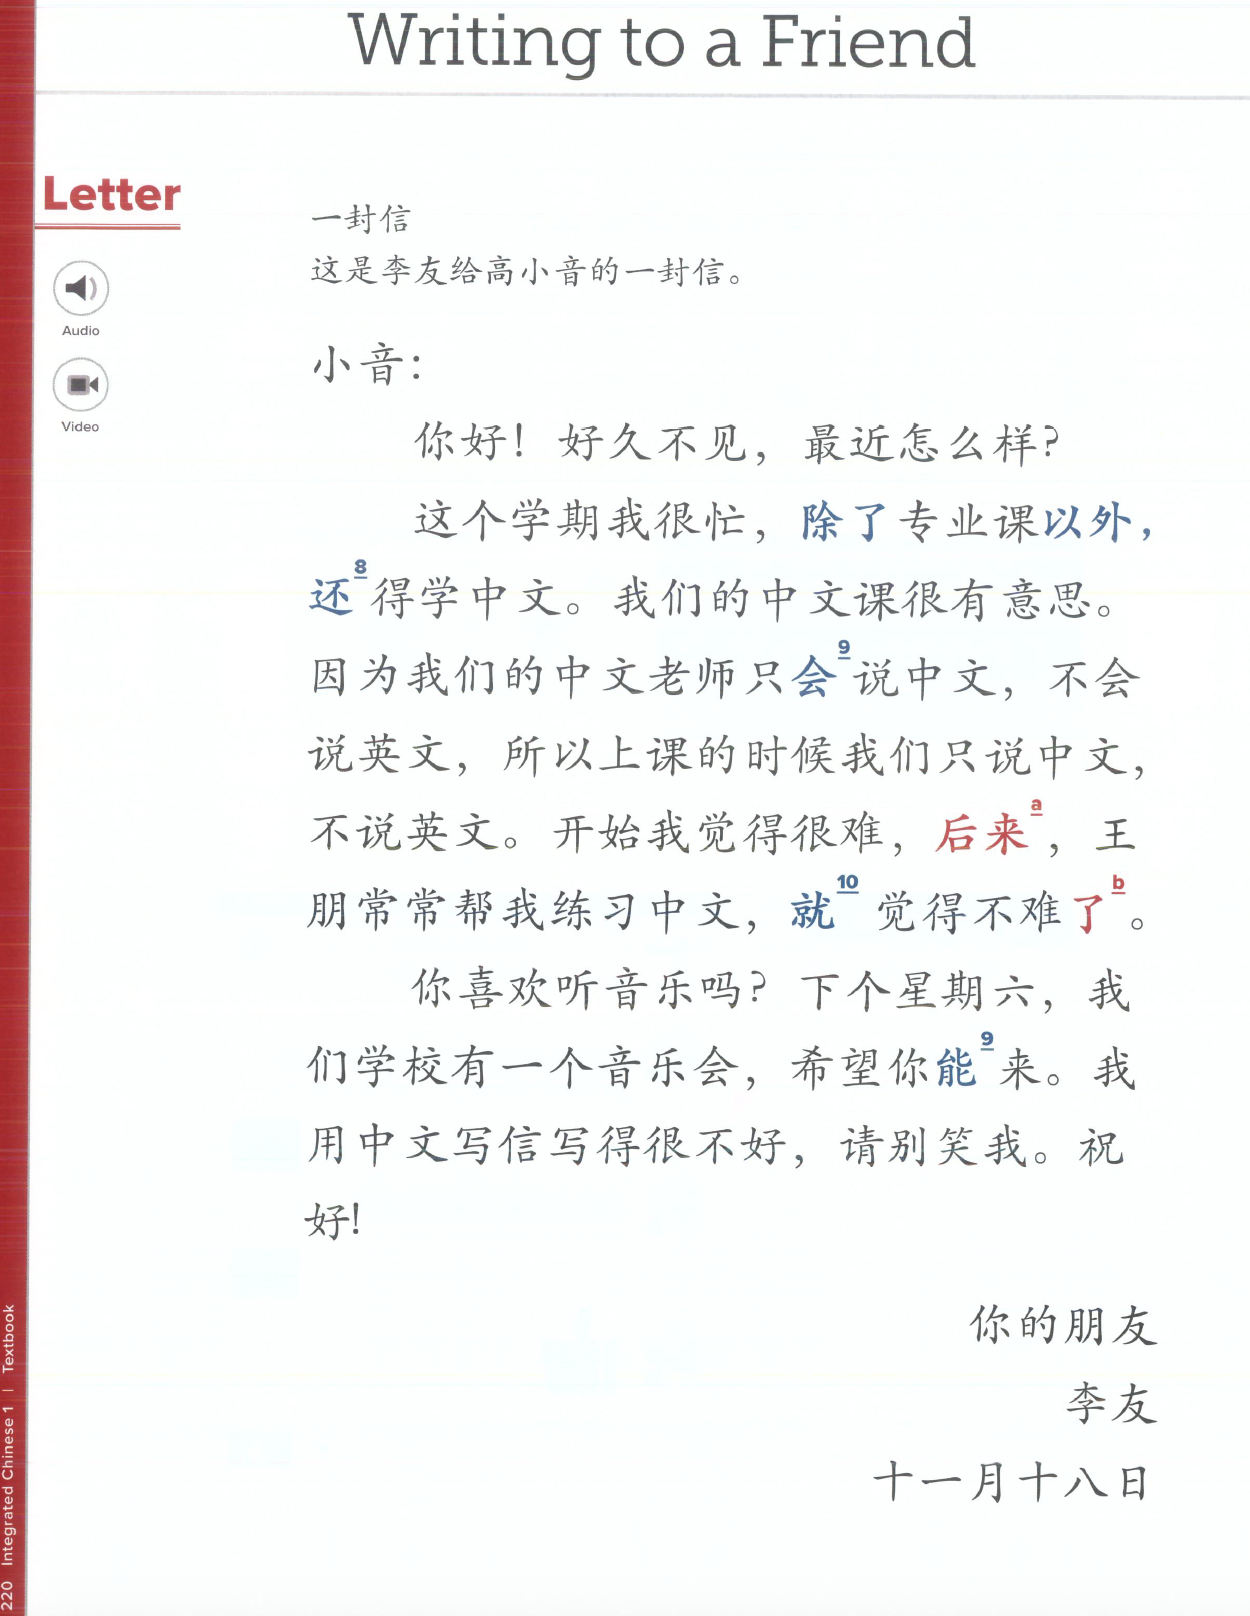 Writing to a Friend
Letter
Audio
Video
一封信
这是李友给高小音的一封信。
小音：
你好！好久不见，最近怎么样？
这个学期我很忙，除了专业课以外，
还8得学中文。我们的中文课很有意思。
因为我们的中文老师只会9说中文，不会
说英文，所以上课的时候我们只说中文，
不说英文。开始我觉得很难，后来a，王
朋常常帮我练习中文，就10觉得不难了b。
你喜欢听音乐吗？下个星期六，我
们学校有一个音乐会，希望你能9来。我
用中文写信写得很不好，请别笑我。祝
好！
你的朋友
李友
十一月十八日
220 Integrated Chinese 1 | Textbook